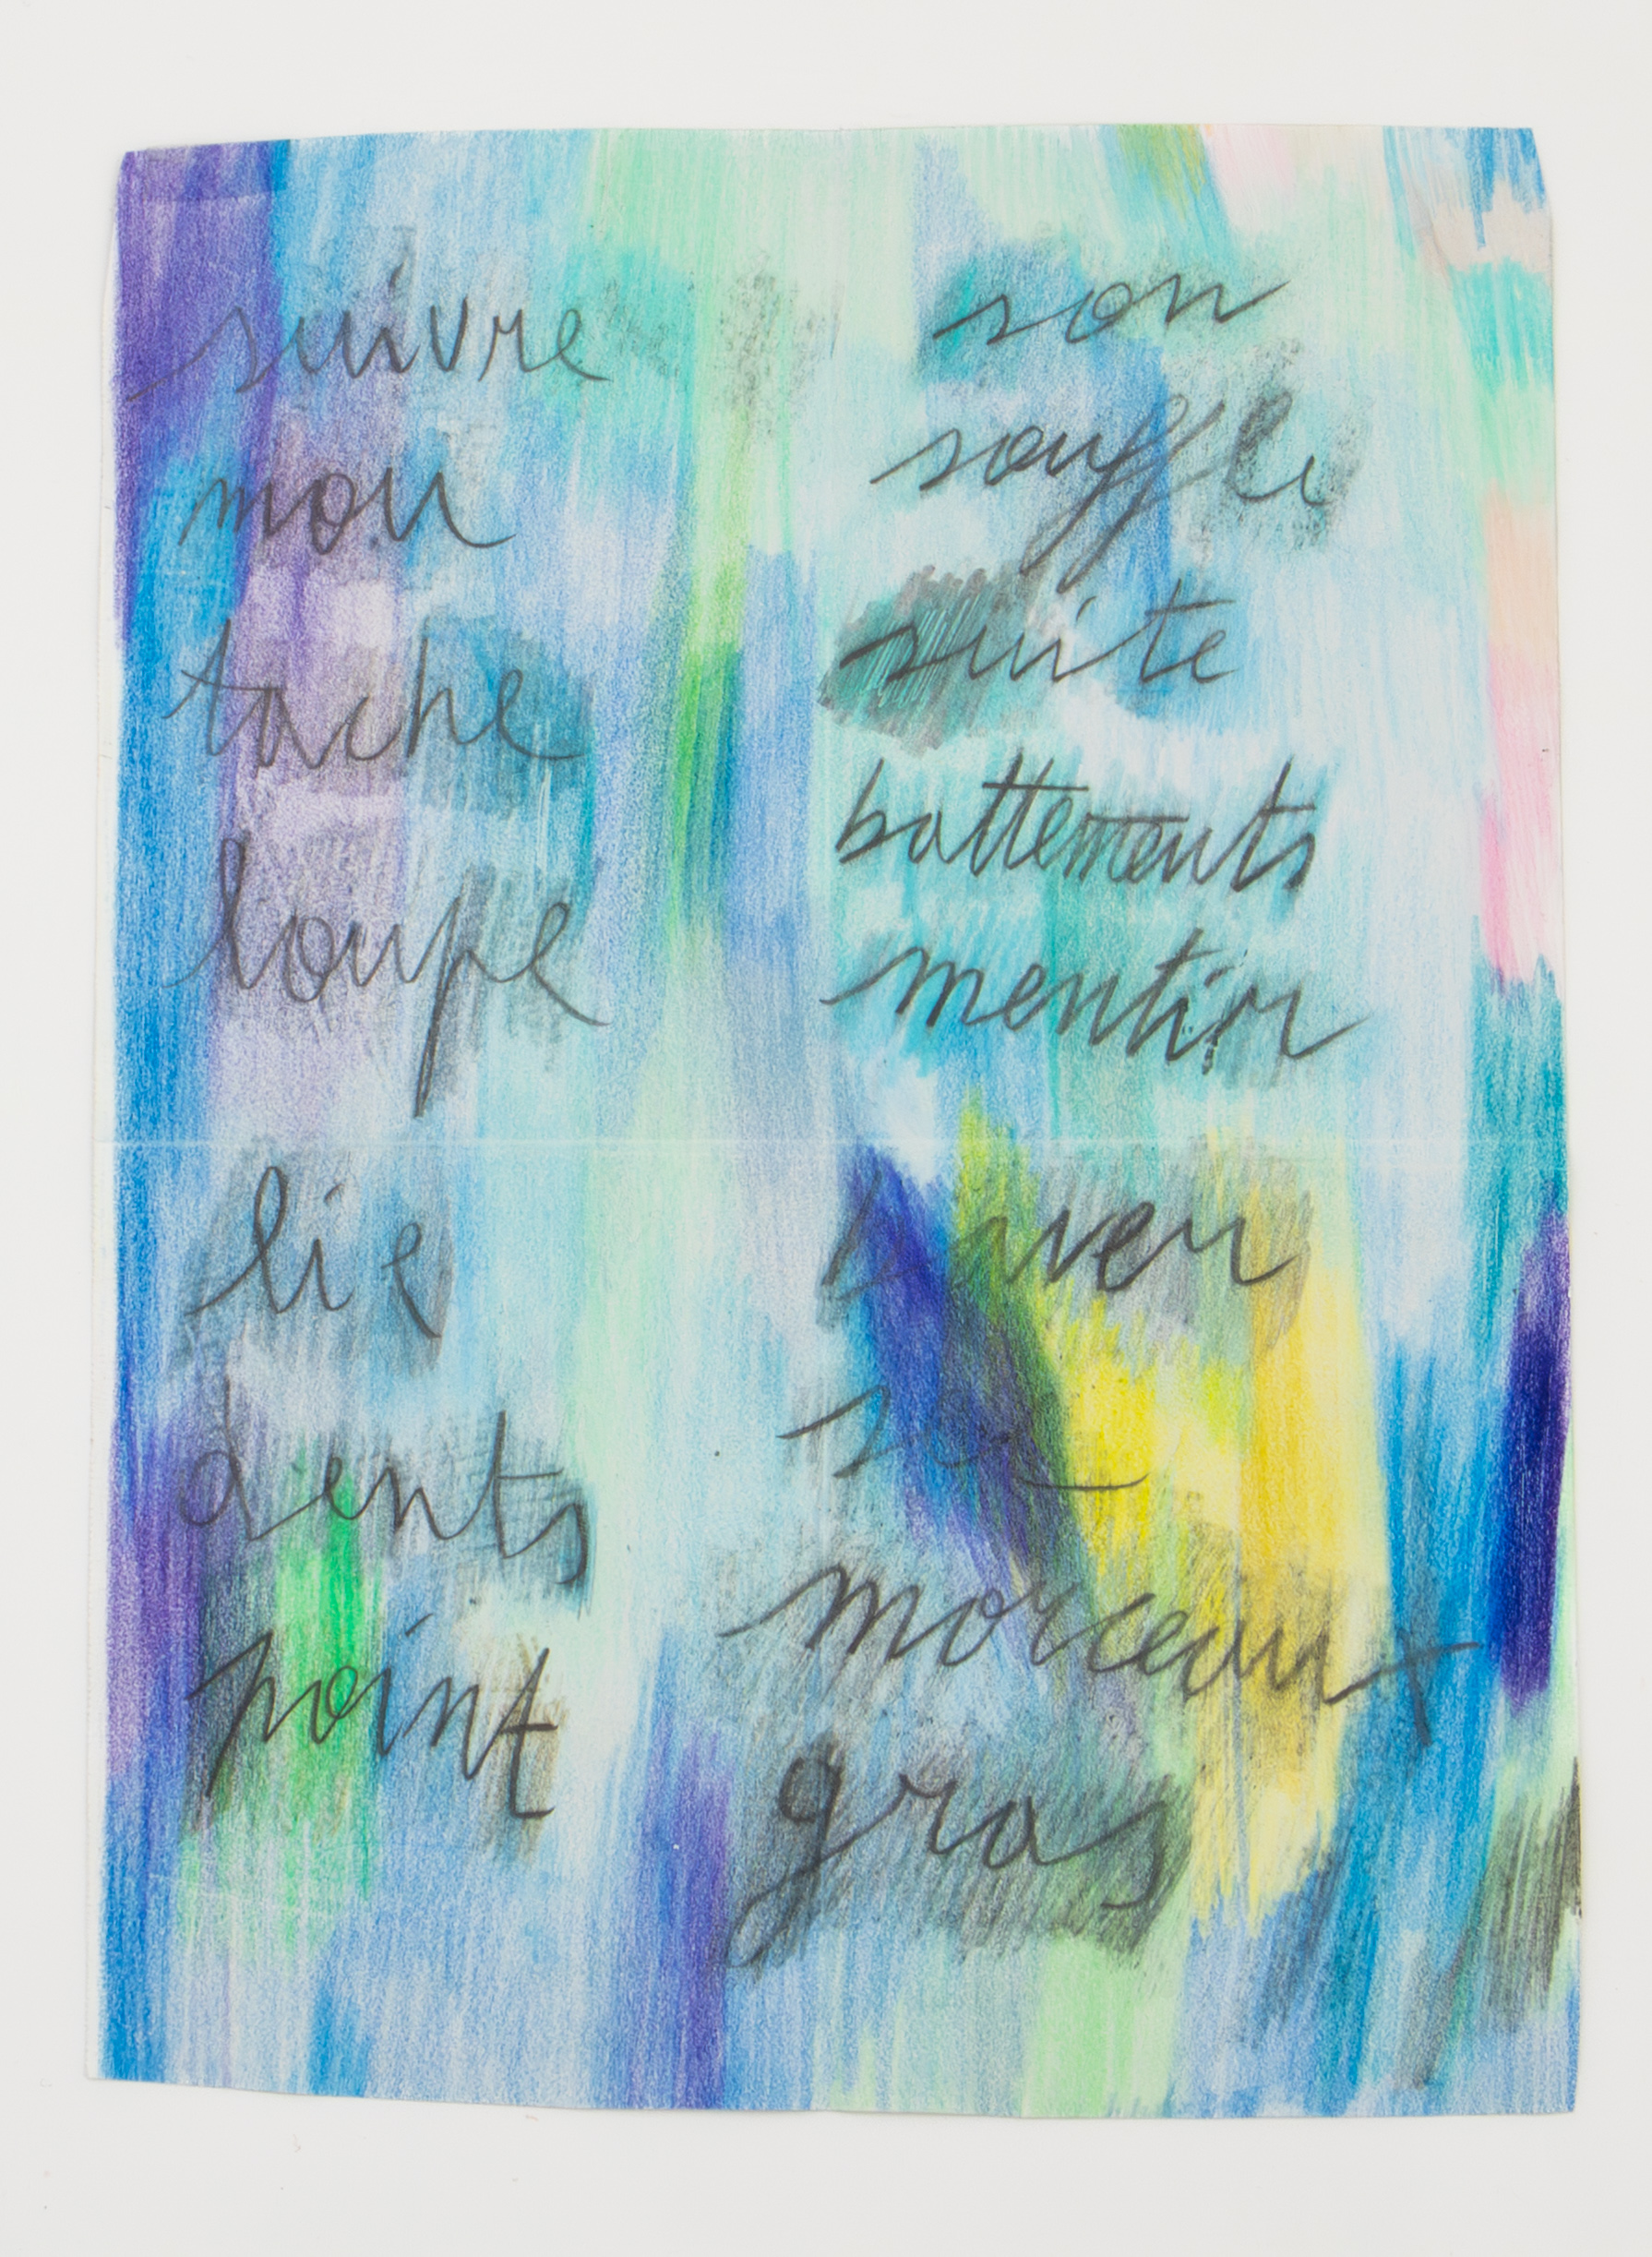 suivre
mou
tache
loupe
lie
dents
point
son
souffle
suite
battements
mentir
morceaux
gras